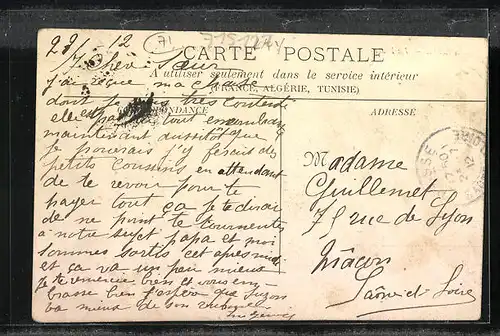 28/7 12
71
CARTE POSTALE
A utiliser seulement dans le service intérieur
(FRANCE, ALGÉRIE, TUNISIE)
CORRESPONDANCE
ADRESSE
Chère Sœur
j'ai reçue ma
dont je suis très
elle est tout
maintenant aussitôt que
je pourais j'y ferais des
petits coussins en attendant
de te revoir pour te
payer tout ça je te dirais
de ne point te tourmenter
à notre sujet papa et moi
sommes sortis cet après midi
et ça va un peu mieux
je te remercie bien et vous em-
brasse bien j'espère que
va mieux de son
Madame
Guillemet
75 rue de Lyon
Mâcon
Saône et Loire